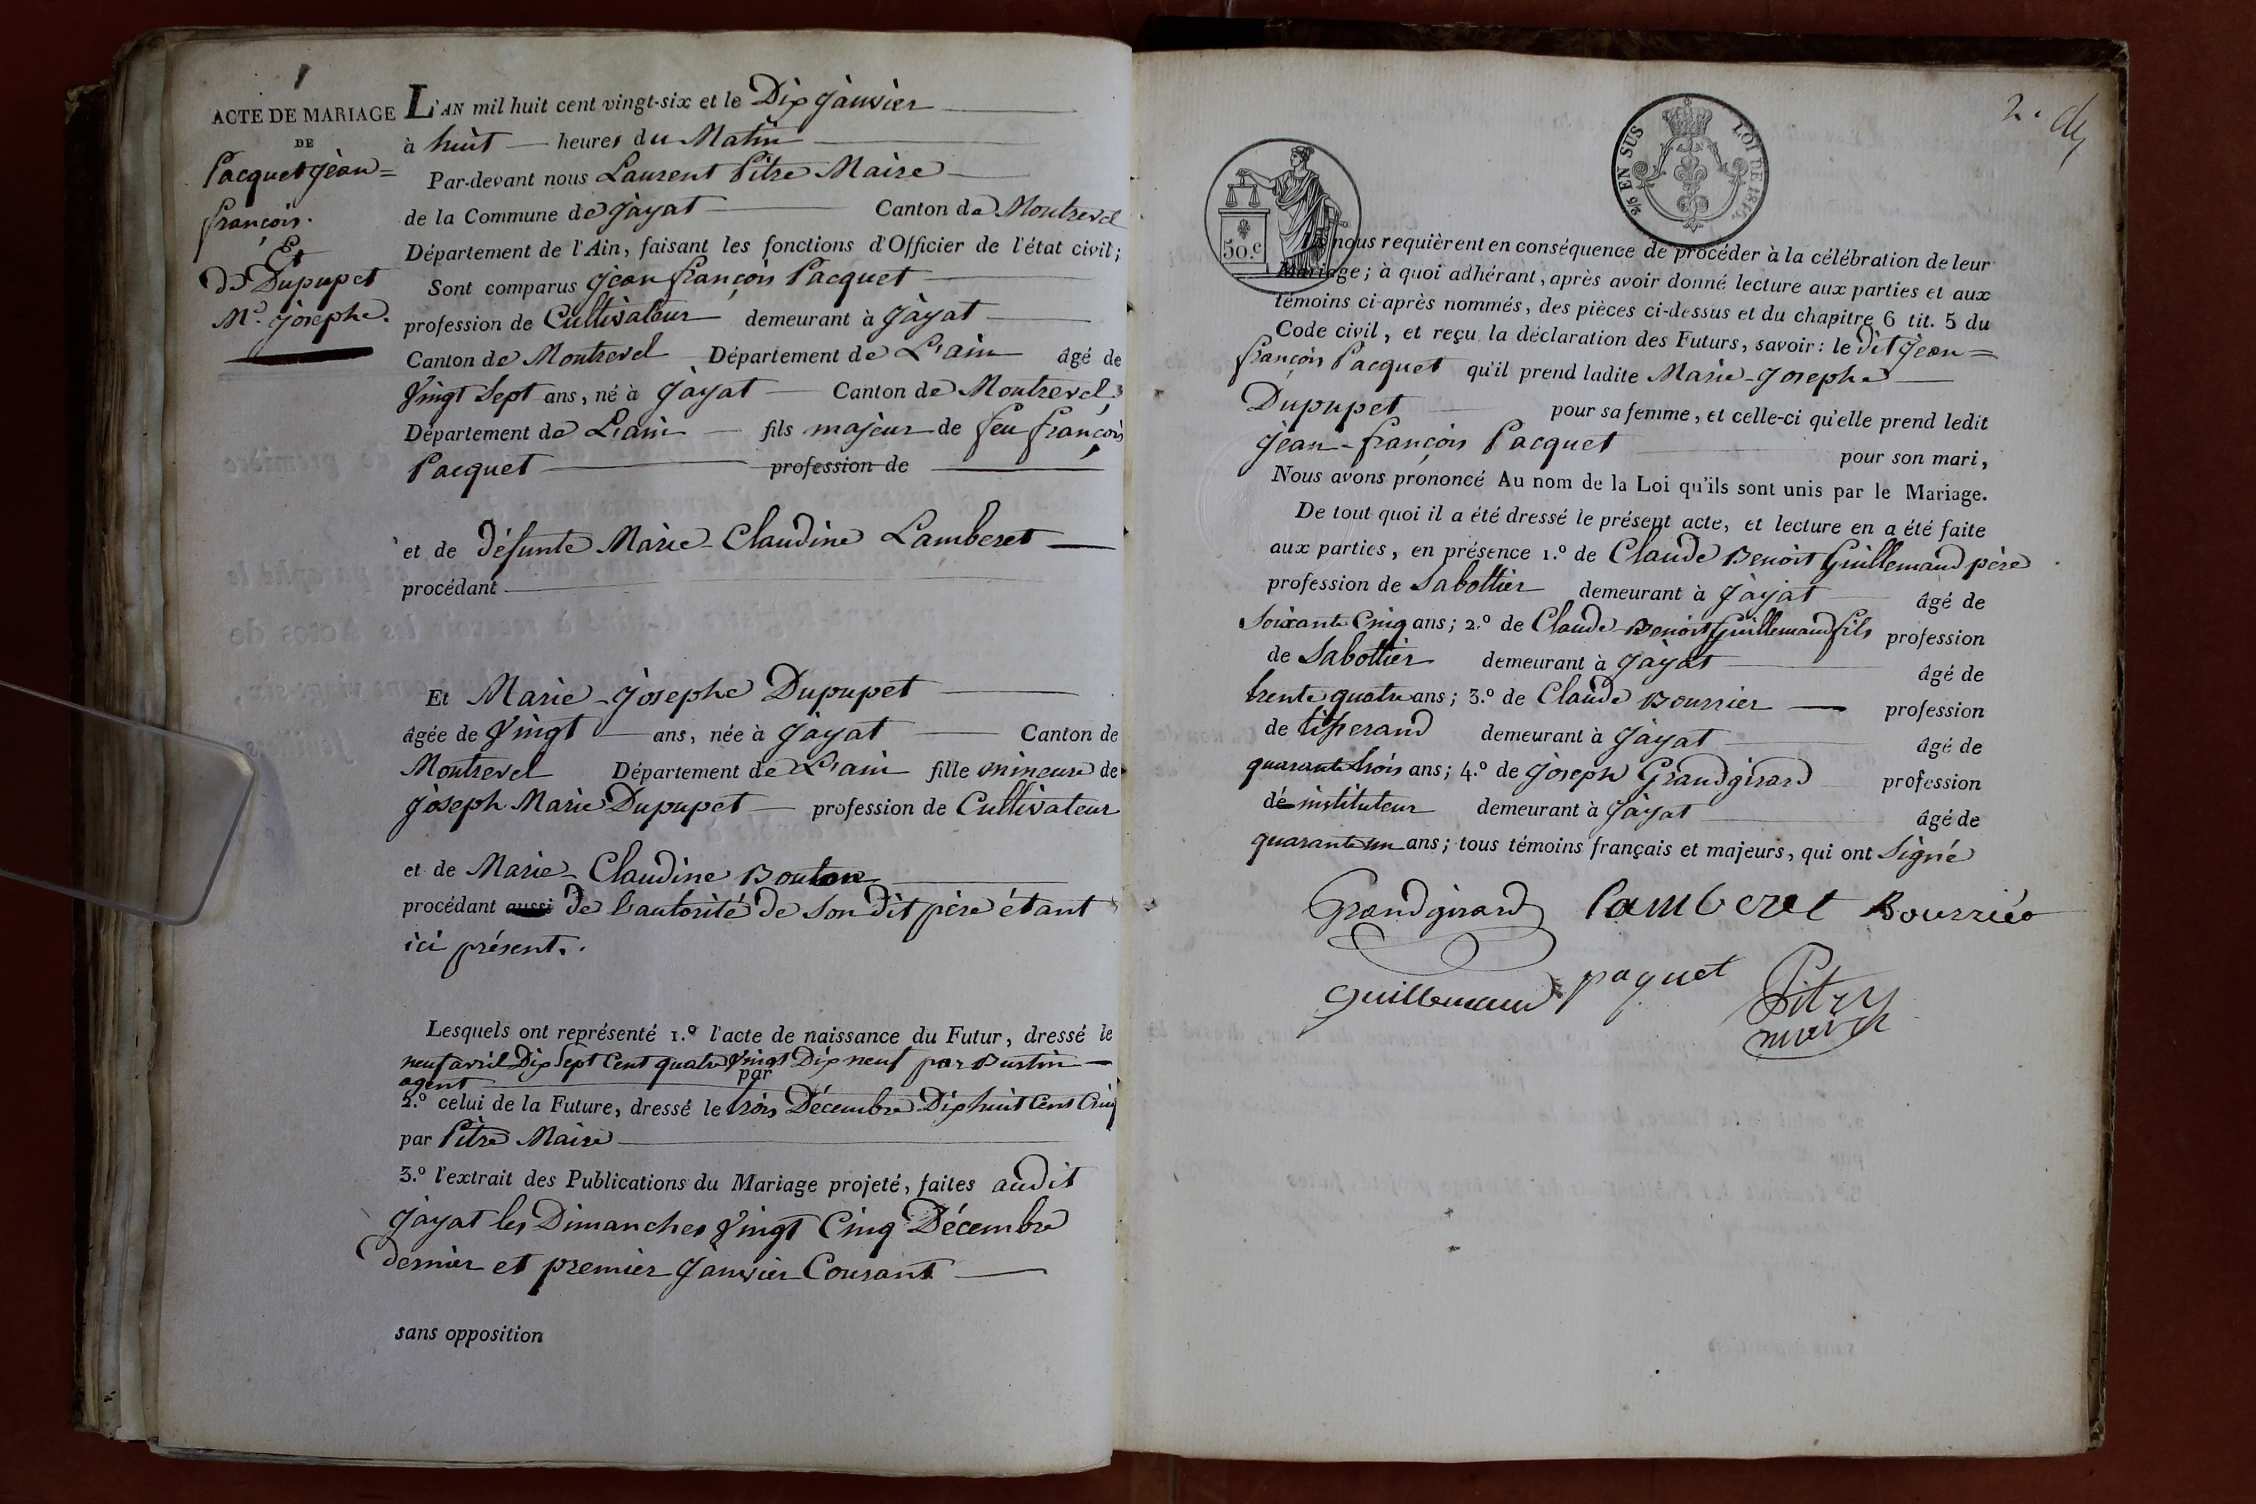 ACTE DE MARIAGE
DE
Pacquet Jean=
françois.
Et
Dupupet
Me. Josephe.
L'AN mil huit cent vingt-six et le Dix Janvier
à huit heures du Matin
Par-devant nous Laurent Pitre Maire
de la Commune de Jayat Canton de Montrevel
Département de l'Ain, faisant les fonctions d'Officier de l'état civil;
Sont comparus Jean françois Pacquet
profession de Cultivateur demeurant à Jayat
Canton de Montrevel Département de L'ain âgé de
Vingt Sept ans, né à Jayat Canton de Montrevel
Département de L'ain fils majeur de feu françois
Pacquet profession de
et de défunte Marie-Claudine Lamberet
procédant
Et Marie-Josephe Dupupet
âgée de Vingt ans, née à Jayat Canton de
Montrevel Département de L'ain fille mineure de
Joseph Marie Dupupet profession de Cultivateur
et de Marie-Claudine Bouton
procédant aussi de l'autorité de son dit père étant
ici présent.
Lesquels ont représenté 1.º l'acte de naissance du Futur, dressé le
neuf avril Dix Sept Cent quatre Vingt Dix neuf par Burtin
agent par
2.º celui de la Future, dressé le trois Décembre Dix huit Cent Cinq
par Pitre Maire
3.º l'extrait des Publications du Mariage projeté, faites audit
Jayat les Dimanches Vingt Cinq Décembre
dernier et premier Janvier Courant
sans opposition
2.
5/5 EN SUS LOI DE 1815.
50.c
Ils nous requièrent en conséquence de procéder à la célébration de leur
Mariage; à quoi adhérant, après avoir donné lecture aux parties et aux
témoins ci-après nommés, des pièces ci-dessus et du chapitre 6 tit. 5 du
Code civil, et reçu la déclaration des Futurs, savoir: le dit Jean=
françois Pacquet qu'il prend ladite Marie-Josephe
Dupupet pour sa femme, et celle-ci qu'elle prend ledit
Jean-françois Pacquet pour son mari,
Nous avons prononcé Au nom de la Loi qu'ils sont unis par le Mariage.
De tout quoi il a été dressé le présent acte, et lecture en a été faite
aux parties, en présence 1.º de Claude Benoit Guillemaud père
profession de Sabottier demeurant à Jayat âgé de
Soixante Cinq ans; 2.º de Claude-Benoit Guillemaud fils profession
de Sabottier demeurant à Jayat âgé de
trente quatre ans; 3.º de Claude Bourrier profession
de tisserand demeurant à Jayat âgé de
quarante trois ans; 4.º de Joseph Grandgirard profession
de instituteur demeurant à Jayat âgé de
quarante un ans; tous témoins français et majeurs, qui ont Signé
Grandgirard Lamberet Bourriéo
guillemaud paquet Pitre
maire